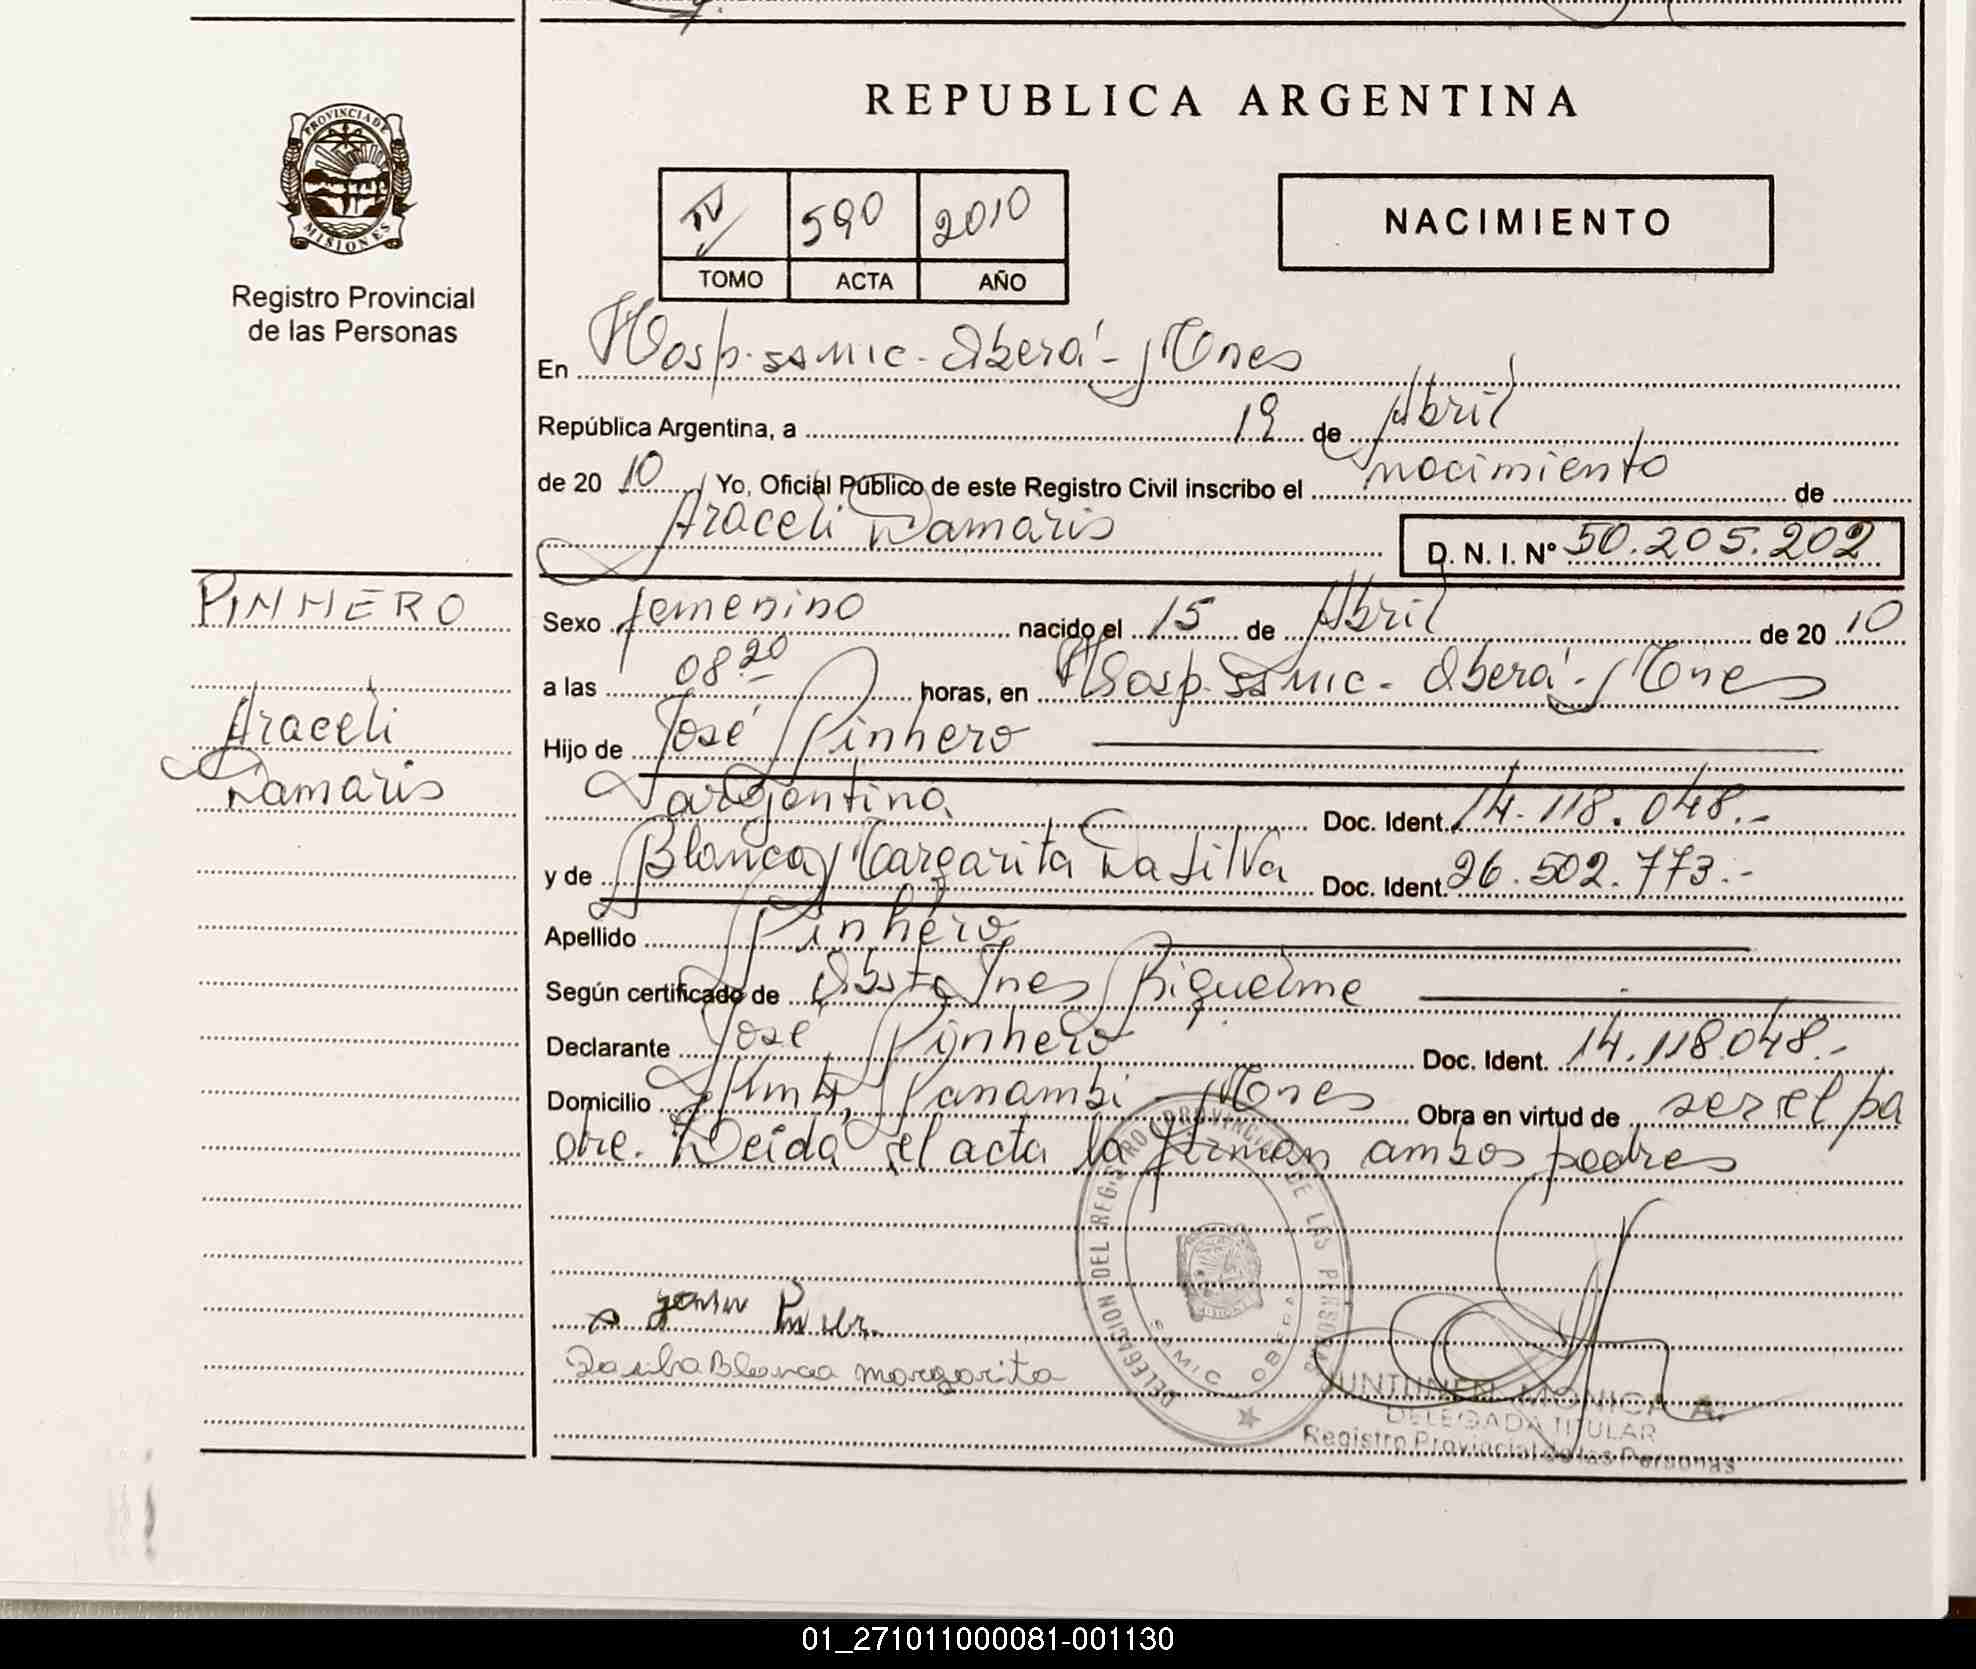 REPUBLICA ARGENTINA
PROVINCIA DE
MISIONES
Registro Provincial
de las Personas
IV 590 2010
TOMO ACTA AÑO
NACIMIENTO
En Hosp. SAMIC - Oberá - Mnes
República Argentina, a 19 de Abril
de 2010 Yo, Oficial Público de este Registro Civil inscribo el nacimiento de
Araceli Damaris D. N. I. Nº 50.205.202
PINHERO
Araceli
Damaris
Sexo femenino nacido el 15 de Abril de 2010
a las 08.20 horas, en Hosp. SAMIC - Oberá - Mnes
Hijo de José Pinhero
argentina Doc. Ident. 14.118.048.-
y de Blanca Margarita Da Silva Doc. Ident. 26.502.773.-
Apellido Pinhero
Según certificado de Obsta Ines Riquelme
Declarante José Pinhero Doc. Ident. 14.118.048.-
Domicilio Km 4, Panambi - Mnes Obra en virtud de ser el pa
dre. Leída el acta la firman ambos padres
DELEGACION DEL REGISTRO PROVINCIAL DE LES PERSONAS
SAMIC OBERA
Dasilva Blanca margarita
JUNTUNEN MONICA A.
DELEGADA TITULAR
Registro Provincial de las Personas
01_271011000081-001130